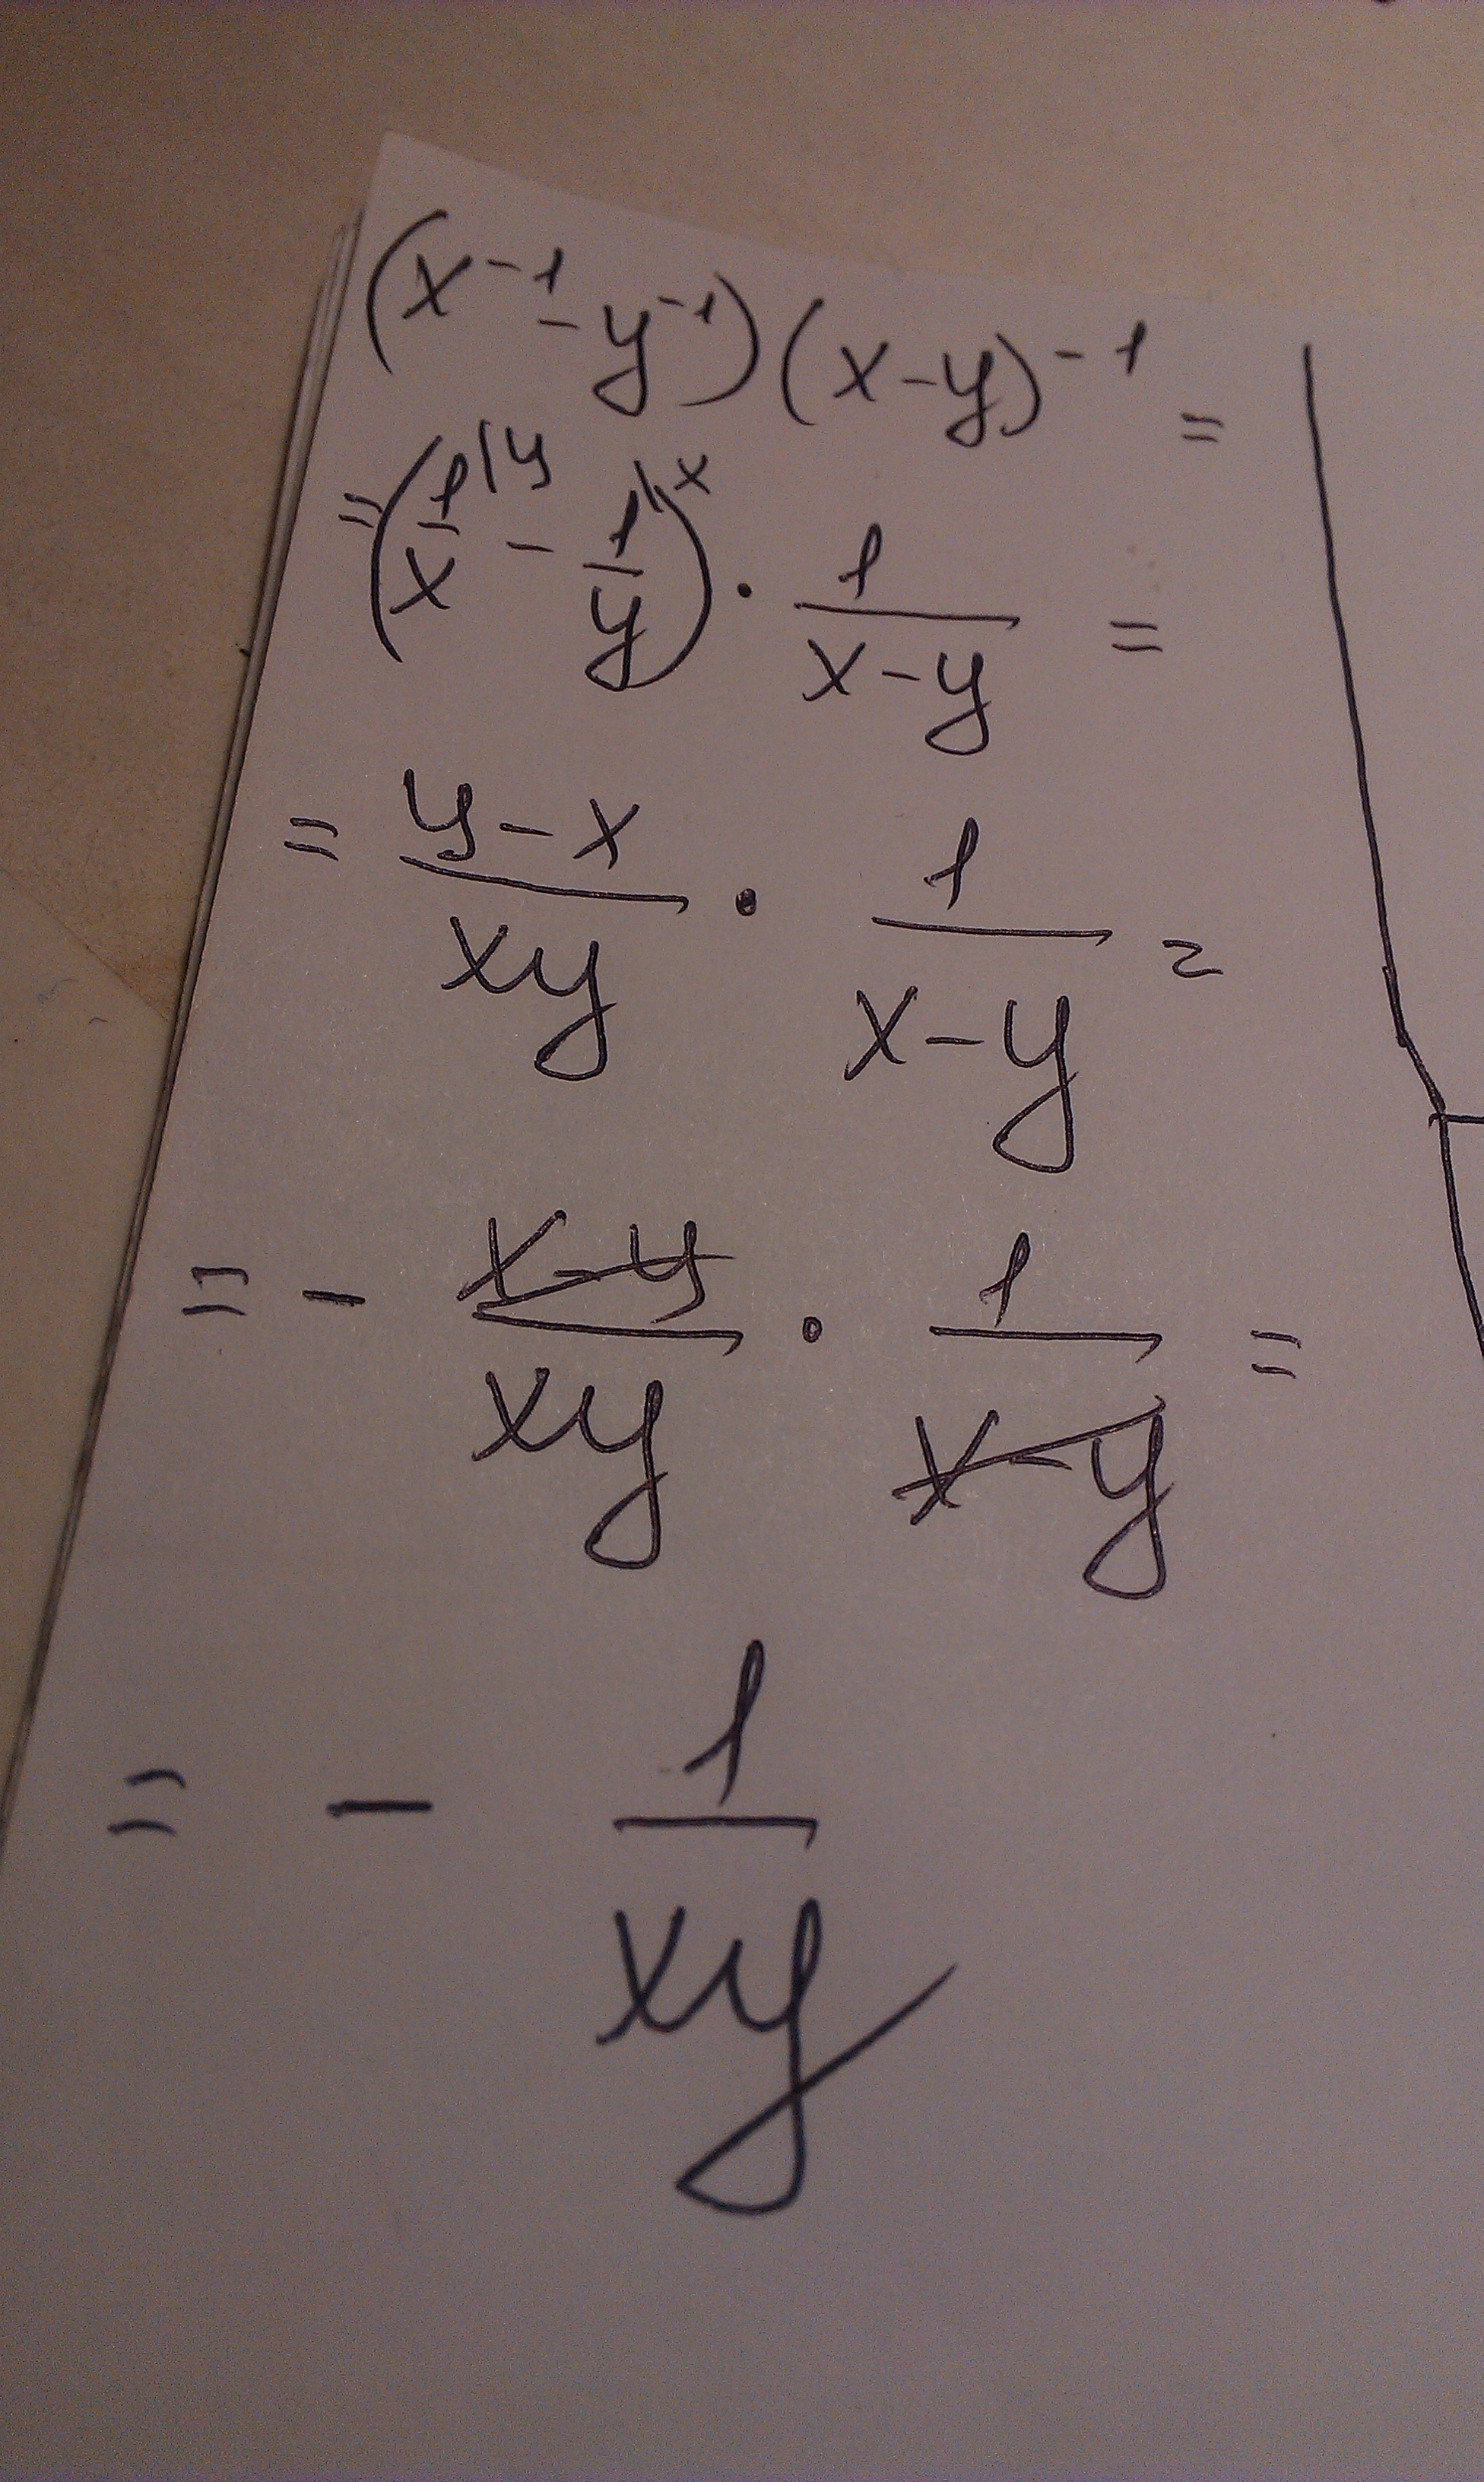 (x⁻¹ - y⁻¹)(x-y)⁻¹ =
= (1/x |y - 1/y \x) · 1/(x-y) =
= (y-x)/(xy) · 1/(x-y) =
= - (x-y)/(xy) · 1/(x-y) =
= - 1/(xy)